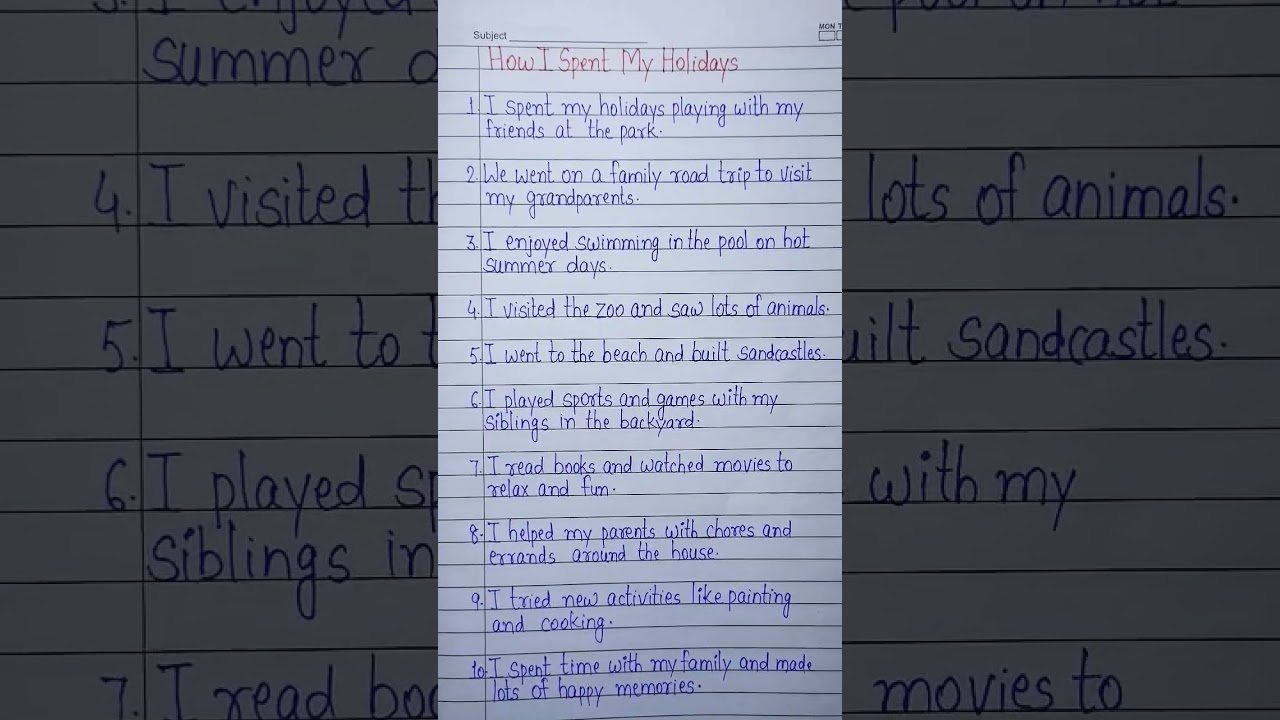 Subject
MON T
How I Spent My Holidays
1. I spent my holidays playing with my
friends at the park.
2. We went on a family road trip to visit
my grandparents.
3. I enjoyed swimming in the pool on hot
summer days.
4. I visited the zoo and saw lots of animals.
5. I went to the beach and built sandcastles.
6. I played sports and games with my
siblings in the backyard.
7. I read books and watched movies to
relax and fun.
8. I helped my parents with chores and
errands around the house.
9. I tried new activities like painting
and cooking.
10. I spent time with my family and made
lots of happy memories.
summer d
4. I visited th
lots of animals.
5. I went to t
uilt sandcastles.
6. I played sp
with my
siblings in
7. I read boo
movies to